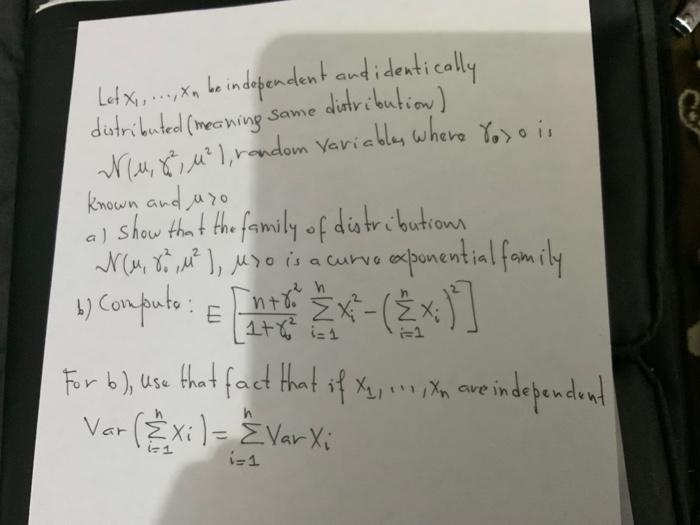 Let x₁, ..., xₙ be independent and identically
distributed (meaning same distribution)
N(μ, γ₀², μ²), random variables, where γ₀>0 is
known and μ>0
a) Show that the family of distributions
N(μ, γ₀², μ²), μ>0 is a curve exponential family
b) Compute: E [ n+γ₀² / 1+γ₀² Σᵢ₌₁ⁿ xᵢ² - (Σᵢ₌₁ⁿ xᵢ)² ]
For b), use that fact that if x₁, ..., xₙ are independent
Var (Σᵢ₌₁ⁿ xᵢ) = Σᵢ₌₁ⁿ Var xᵢ